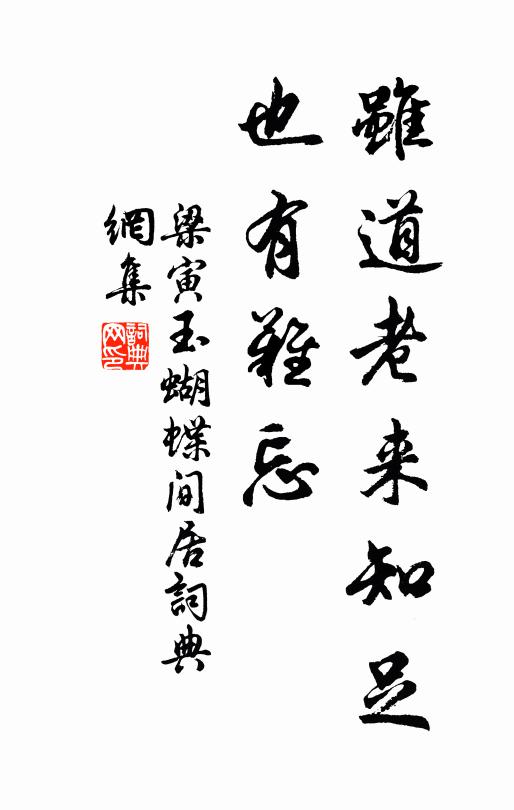 雖道老来知足
也有難忘
梁寅玉蝴蝶间居詞典
網集
詞典
网印